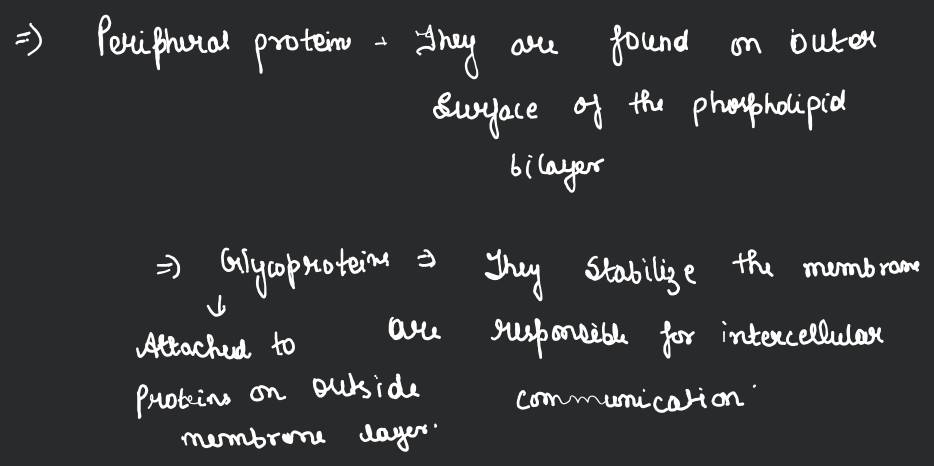 ⇒ Peripheral protein - They are found on outer
surface of the phospholipid
bilayer
⇒ Glycoproteins ⇒ They stabilize the membrane
↓
Attached to are responsible for intercellular
Proteins on outside communication.
membrane layer.